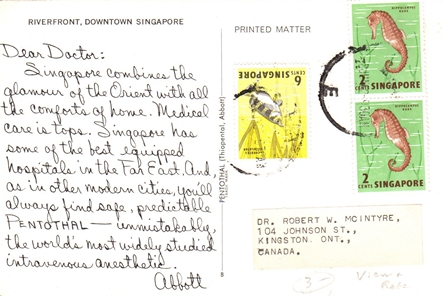 RIVERFRONT, DOWNTOWN SINGAPORE
PRINTED MATTER
Dear Doctor:
Singapore combines the
glamour of the Orient with all
the comforts of home. Medical
care is tops. Singapore has
some of the best equipped
hospitals in the Far East. And,
as in other modern cities, you'll
always find safe, predictable
PENTOTHAL — unmistakably,
the world's most widely studied
intravenous anesthetic.
Abbott
PENTOTHAL (Thiopental, Abbott)
8
SINGAPORE
6 CENTS
HIPPOCAMPUS
KUDA
2 CENTS SINGAPORE
HIPPOCAMPUS
KUDA
2 CENTS SINGAPORE
E
DR. ROBERT W. MCINTYRE,
104 JOHNSON ST.,
KINGSTON. ONT.,
CANADA.
3
View +